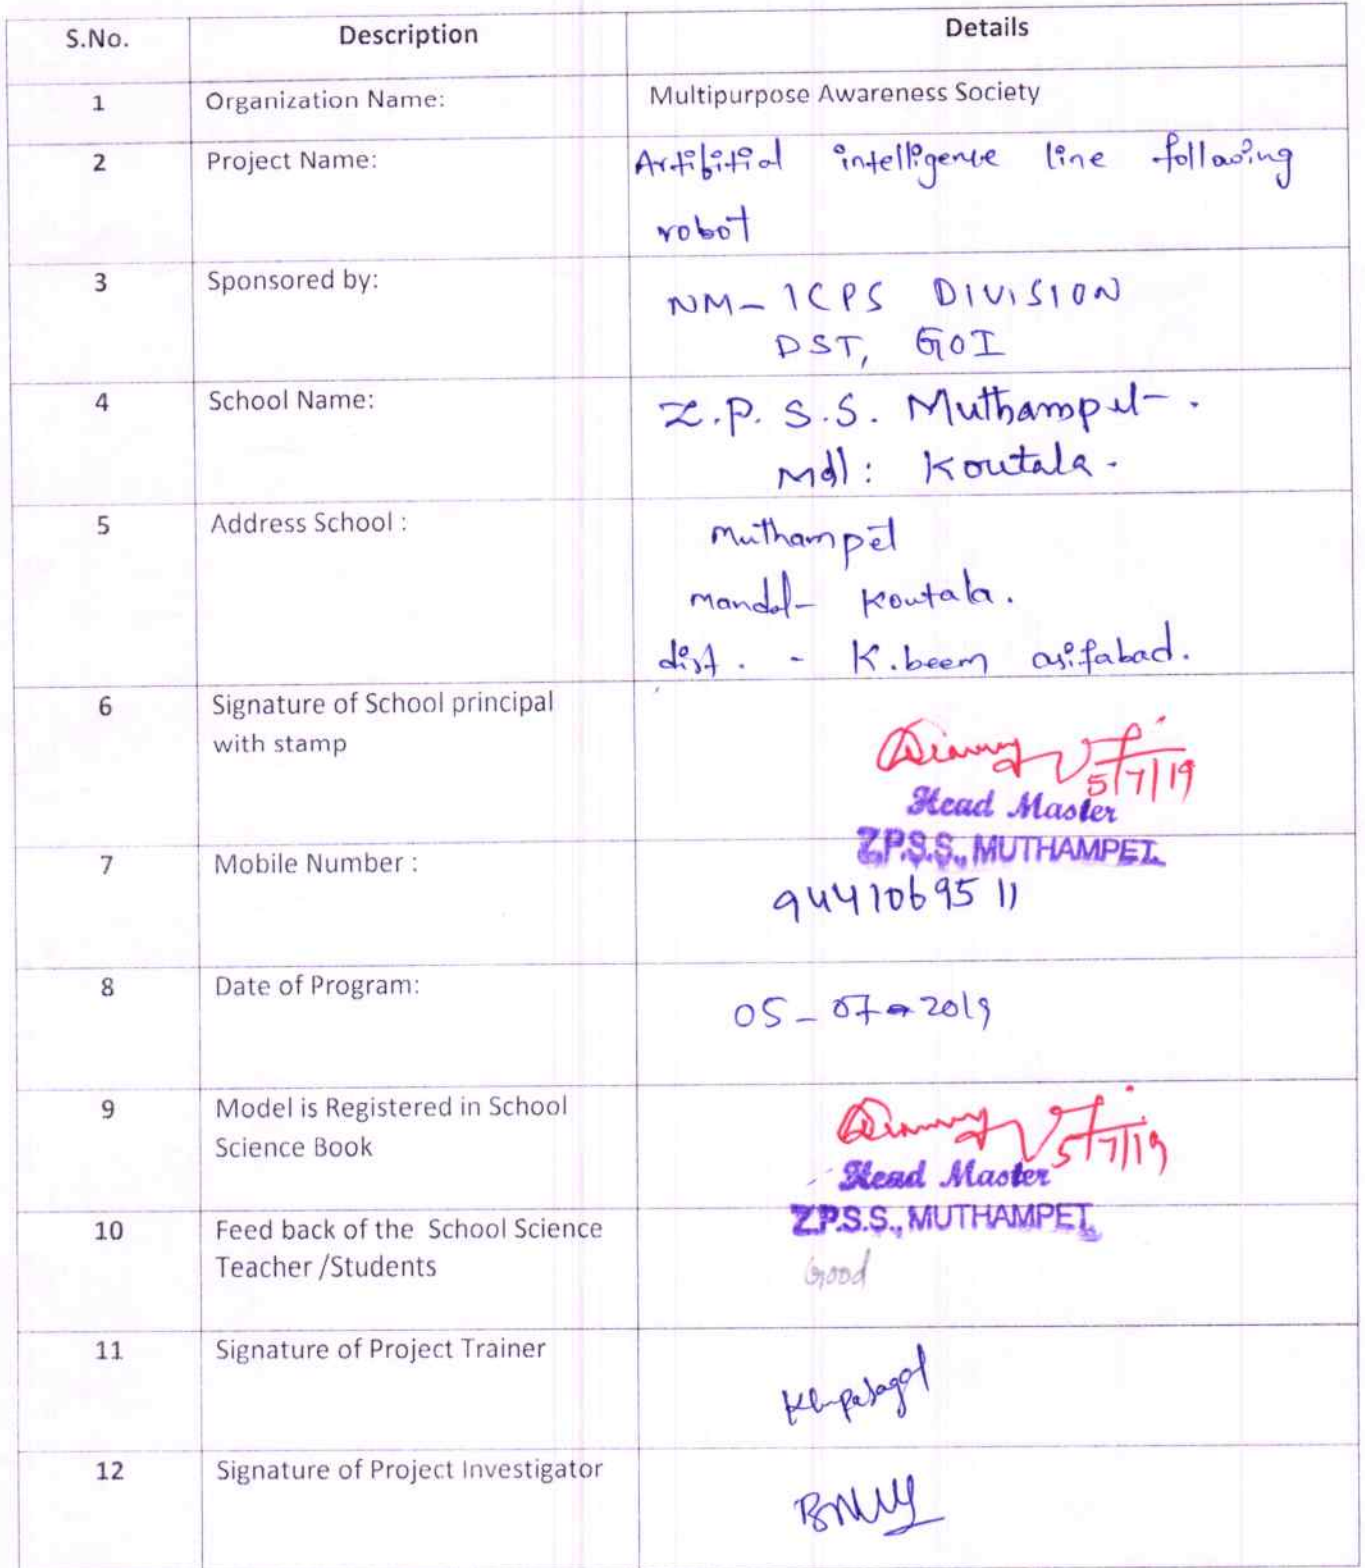 S.No. Description Details
1 Organization Name: Multipurpose Awareness Society
2 Project Name: Artifitial intelligence line following
robot
3 Sponsored by: NM-ICPS DIVISION
DST, GOI
4 School Name: Z.P.S.S. Muthampet.
Mdl: Koutala.
5 Address School : Muthampet
Mandal- Koutala.
dist. - K.beem asifabad.
6 Signature of School principal
with stamp
5/7/19
Head Master
Z.P.S.S., MUTHAMPET.
7 Mobile Number :
9441069511
8 Date of Program:
05-07-2019
9 Model is Registered in School
Science Book
5/7/19
Head Master
Z.P.S.S., MUTHAMPET.
10 Feed back of the School Science
Teacher /Students Good
11 Signature of Project Trainer
12 Signature of Project Investigator